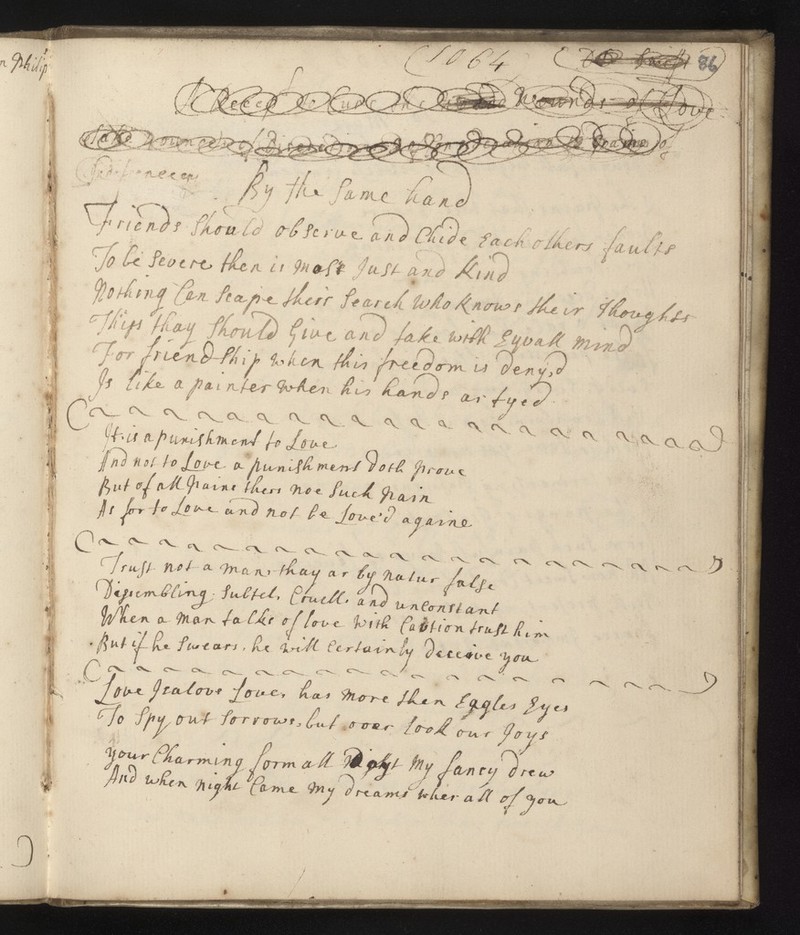 n Philip
1064
86
A Receip to Cure the Wounds of Love
Take 2 ounces of
By the same hand
Friends Should observe and Chide Each others faults
To be Severe then is most Just and Kind
Nothing Can Scape theire Search who knows their thoughts
This thay Should Give and take with Equall mind
For friend-ship when this freedom is deny,d
Is like a painter when his hands ar tyed
It is a punishment to Love
And not to Love a punishment doth prove
But of all Paine thers noe Such Pain
As for to Love and not be Love'd againe
Trust not a man, thay ar by natur false
Dissembling, Sultel, Cruell, and unconstant
When a man talks of love with Caution trust him
But if he Swears, he will Certainly deceive you
Love Jealove Love, has more then Eagles Eyes
To Spy out Sorrows, but over look our Joys
your Charming form all Day My fancy drew
And when night Came My dreams wher all of you